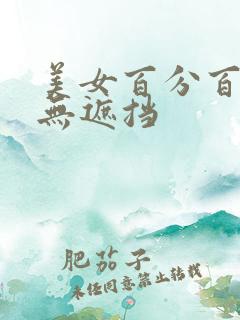 美女百分百
無遮挡
肥茄子
未经同意禁止转载